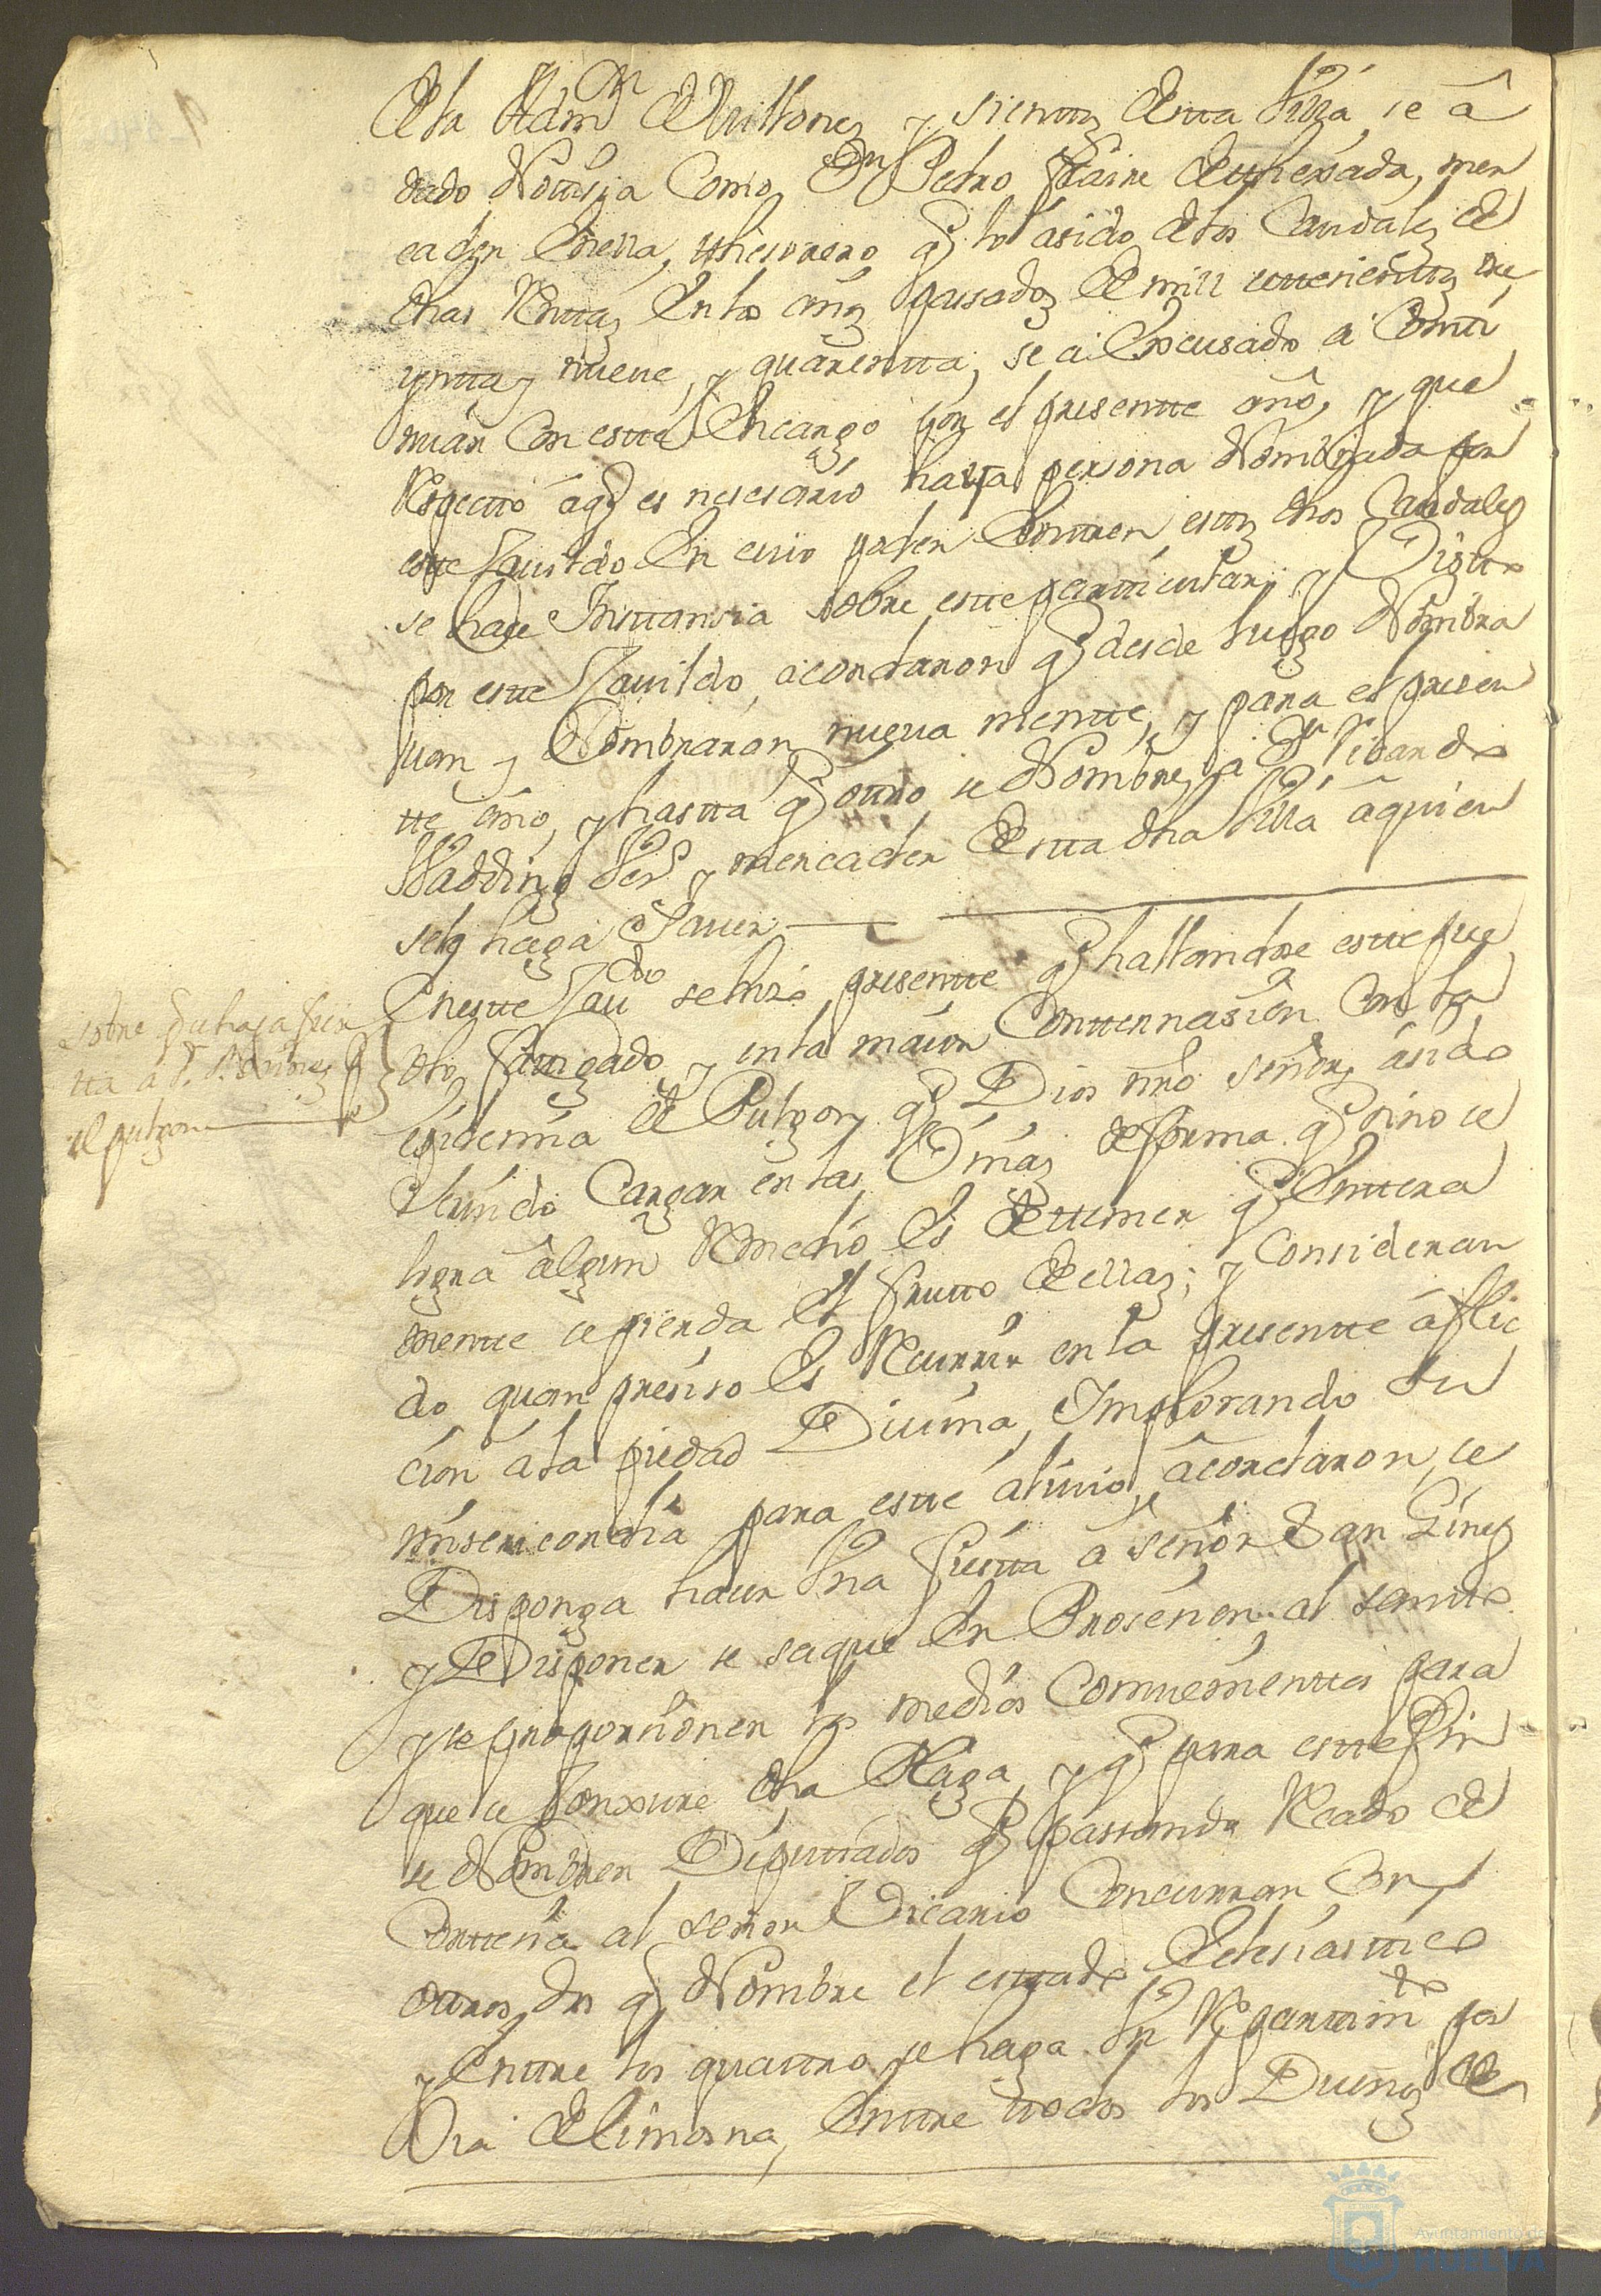 de la Adm.on de Millones y sientos de esta Villa, se â
dado Notisia Como Dn Pedro de utrexada, mer
cader en ella, thesorero q.e lo â sido de los Caudales de
dhas Rentas en los años passados de mill settesientos tre
ynta y nueve, y quarenta, se a Excusado a Conti
nuar Con este Encargo por el presente año, y que
Respecto âq.e es nesesario haya persona Nombrada por
este Cavildo En cuio poder Entren estos dhos Caudales
se hase Insttansia sobre este particular; y Visto
por este Cavildo, acordaron q.e desde luego Nombra
van y Nombraron nueva mente, y para el presen
te año, y hasta q.e otro se Nombre, a Dn Ricardo
Wadding Vez.o y mercader de esta dha Villa âquien
se le haga Saver
En este Cau.do se hizo presente q.e hallandose este pue
blo fatigado y en la maior Consternasion Con la
epidemia de Pulgon q.e Dios nro señor, â sido
seruido Cargar en las Viñas de forma q.e sino se
logra âlgun Remedio Es de temer q.e Entera
mente se pierda el frutto de ellas; y Consideran
do quan presiso Es Recurrir en la presente âflic
cion â la piedad Diuina, Implorando su
misericordia para este aliuio, âcordaron, se
Disponga hacer Vna fiesta â señor San Gines
y Disponer se saque En Prosesion al santo
y se proporsionen los medios Comuenientes para
que se Conxure dha Plaga, y q.e para este fin
se Nombren Diputados q.e passando Recado de
Cortesia al señor Vicario Concurran Con
otros dos q.e Nombre el estado Eclesiastico
y Entre los quattro se haga Vn Repartim.to por
Via de limosna, Entre todos los Dueños de
sobre q.e se haga fies
ta a S. S. Gines
el pulgon
Ayuntamiento de
HUELVA